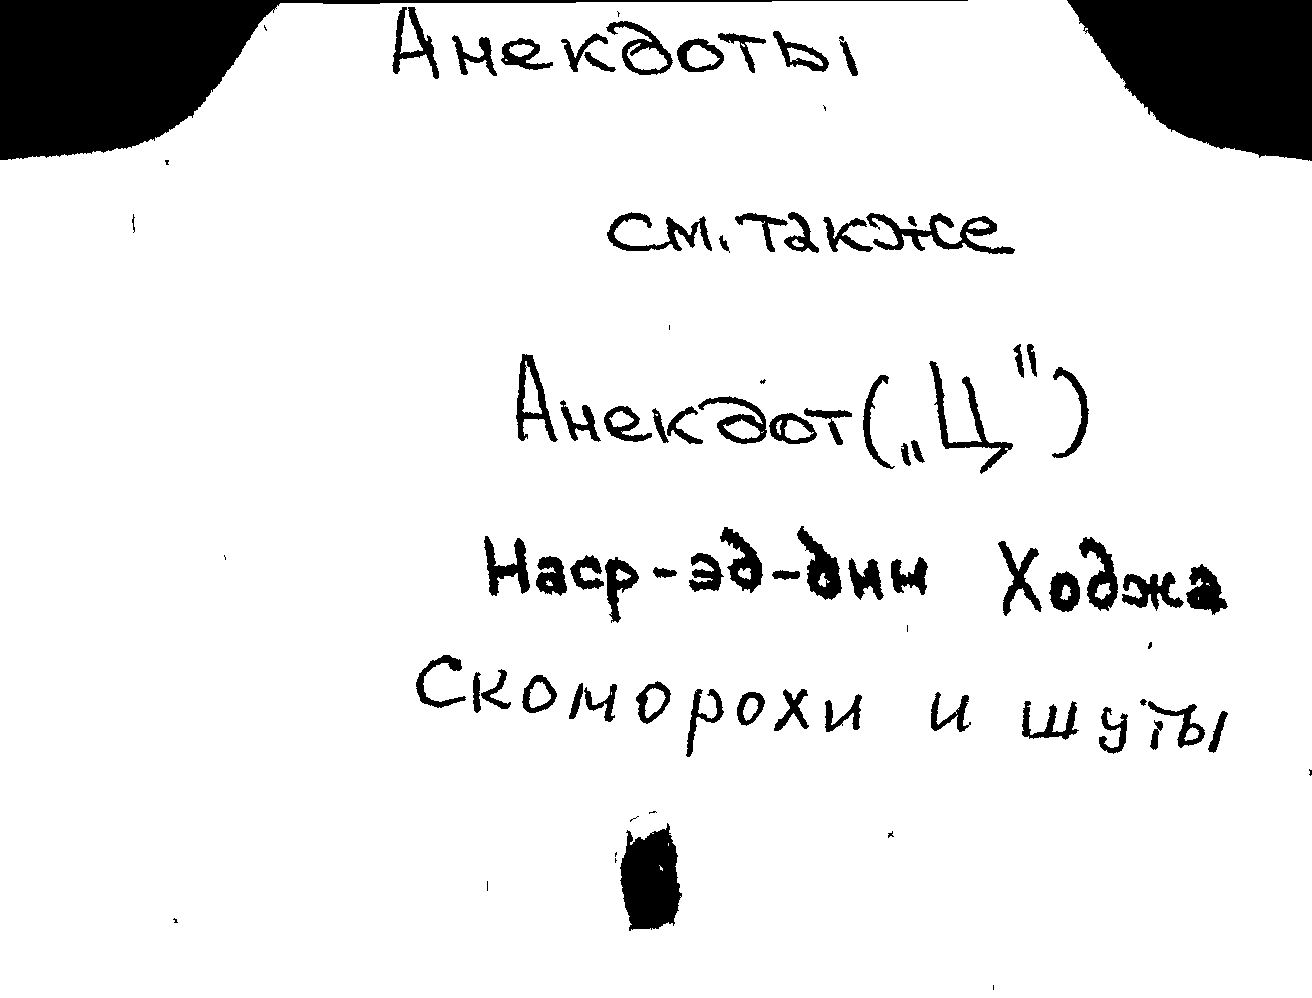 Анекдоты
см. также
Анекдот („Ц")
Наср-эд-дин Ходжа
Скоморохи и шуты